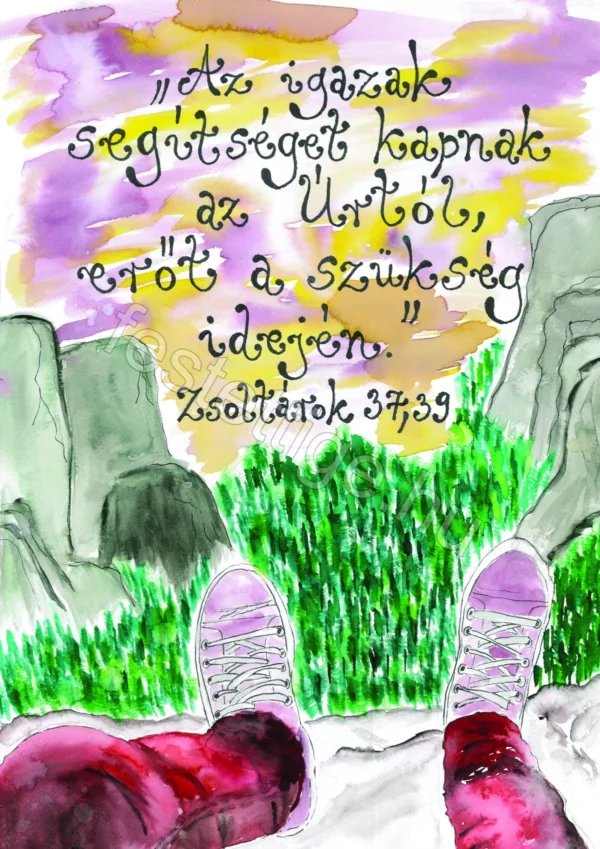 „Az igazak
segítséget kapnak
az Úrtól,
erőt a szükség
idején."
Zsoltárok 37,39
festettige.hu